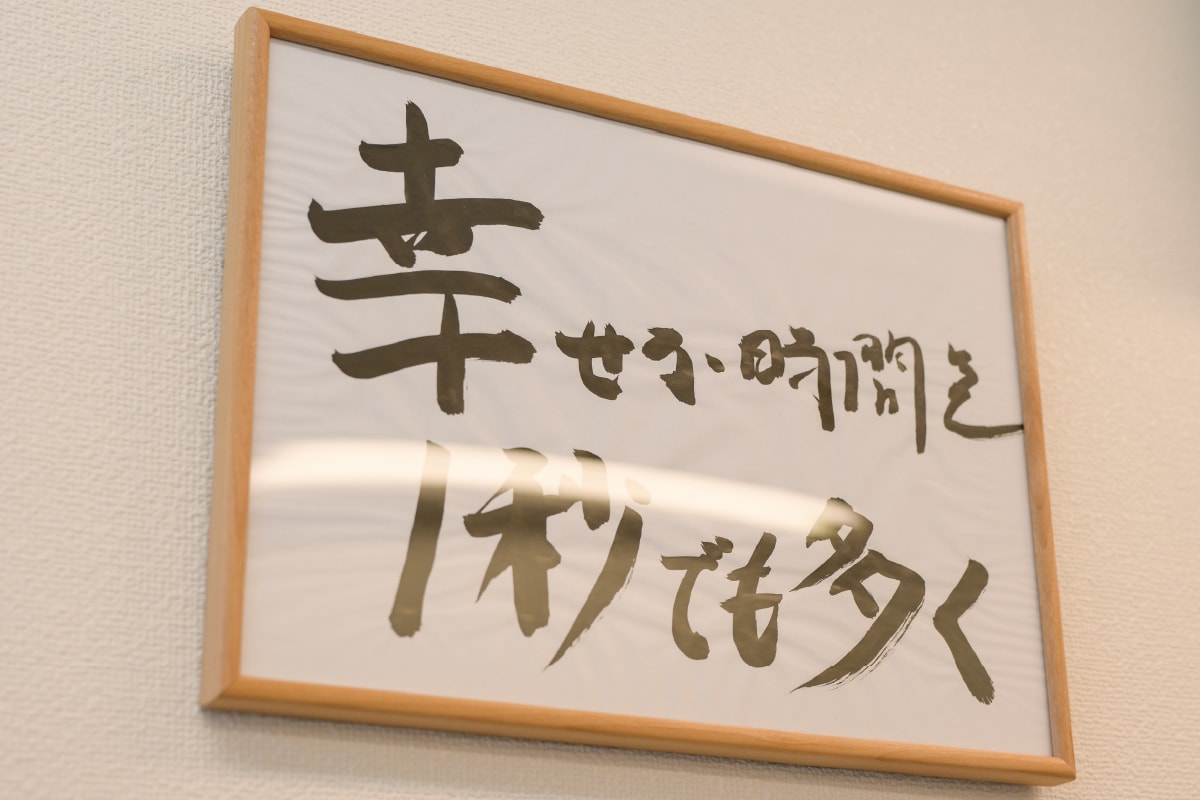 幸せな時間を
1秒でも多く